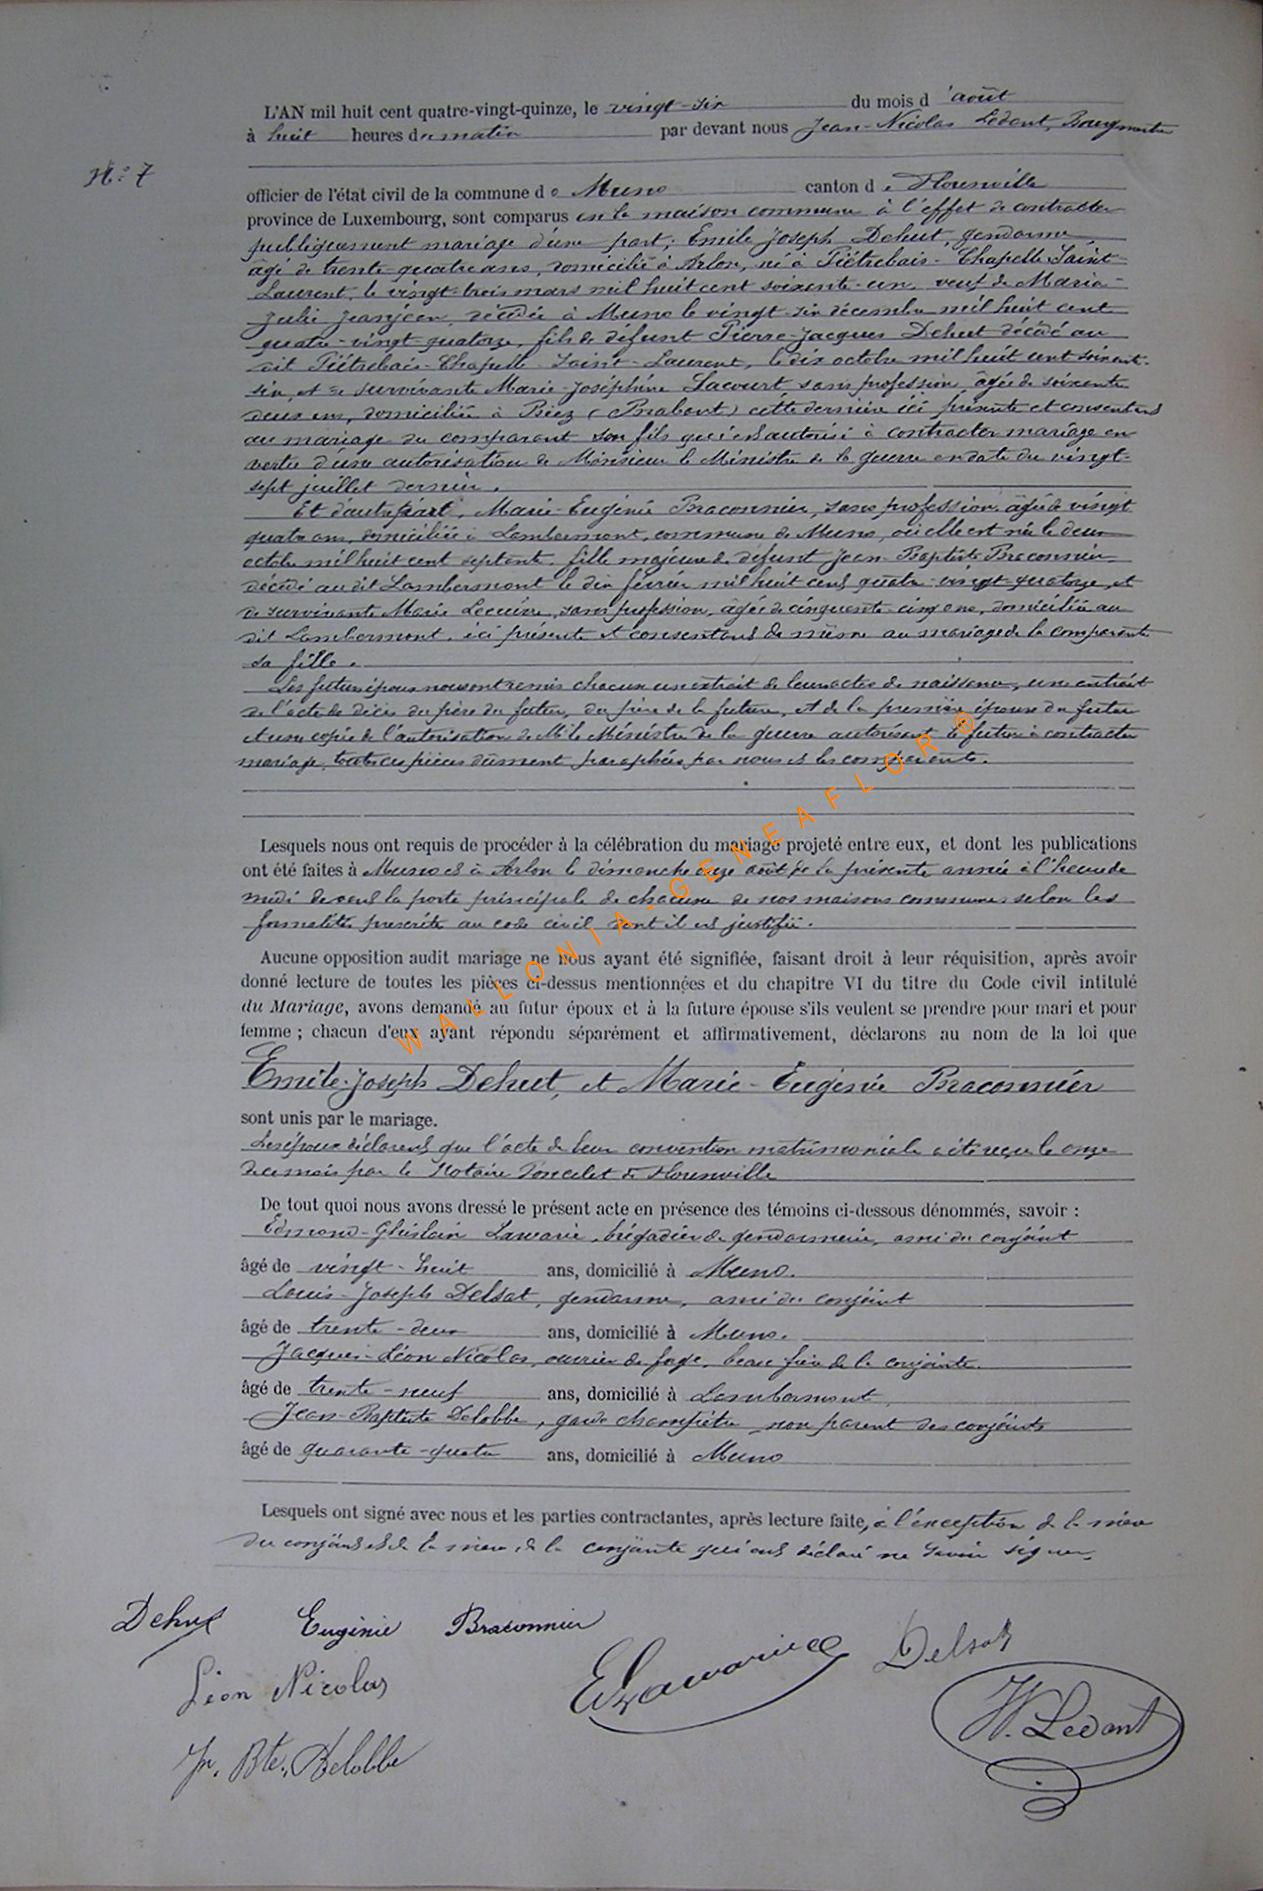 L'AN mil huit cent quatre-vingt-quinze, le vingt-six du mois d'août
à huit heures du matin par devant nous Jean-Nicolas Ledant, Bourgmestre
N° 7
officier de l'état civil de la commune de Muno canton de Florenville
province de Luxembourg, sont comparus en la maison commune à l'effet de contracter
publiquement mariage d'une part; Emile Joseph Dehut, gendarme
âgé de trente-quatre ans, domicilié à Arlon, né à Piétrebais-Chapelle-Saint-
Laurent, le vingt-trois mars mil huit cent soixante-un, veuf de Marie-
Julie Jeanjean, décédée à Muno le vingt-six décembre mil huit cent
quatre-vingt-quatorze, fils de défunt Pierre-Jacques Dehut décédé au
dit Piétrebais-Chapelle-Saint-Laurent, le dix octobre mil huit cent soixante-
six, et de survivante Marie-Joséphine Lacourt sans profession, âgée de soixante
deux ans, domiciliée à Biez (Brabant) cette dernière ici présente et consentant
au mariage du comparant son fils qui est autorisé à contracter mariage en
vertu d'une autorisation de Monsieur le Ministre de la guerre en date du vingt-
sept juillet dernier.
Et d'autre part, Marie-Eugénie Braconnier, sans profession, âgée de vingt
quatre ans, domiciliée à Lambermont, commune de Muno, où elle est née le deux
octobre mil huit cent septante, fille majeure de défunt Jean-Baptiste Braconnier
décédé au dit Lambermont le dix février mil huit cent quatre-vingt quatorze, et
de survivante Marie Lecuivre, sans profession, âgée de cinquante-cinq ans, domiciliée au
dit Lambermont, ici présente et consentant de même au mariage de la comparante
sa fille.
Les futurs époux nous ont remis chacun un extrait de leurs actes de naissance, un extrait
de l'acte de décès du père du futur, du père de la future, et de la première épouse du futur
et une copie de l'autorisation de Mr le Ministre de la guerre autorisant le futur à contracter
mariage, toutes ces pièces dûment paraphées par nous et les comparants.
Lesquels nous ont requis de procéder à la célébration du mariage projeté entre eux, et dont les publications
ont été faites à Muno et à Arlon le dimanche onze août de la présente année à l'heure de
midi devant la porte principale de chacune de nos maisons communes selon les
formalités prescrites au code civil dont il est justifié.
Aucune opposition audit mariage ne nous ayant été signifiée, faisant droit à leur réquisition, après avoir
donné lecture de toutes les pièces ci-dessus mentionnées et du chapitre VI du titre du Code civil intitulé
du Mariage, avons demandé au futur époux et à la future épouse s'ils veulent se prendre pour mari et pour
femme ; chacun d'eux ayant répondu séparément et affirmativement, déclarons au nom de la loi que
Emile-Joseph Dehut, et Marie-Eugénie Braconnier
sont unis par le mariage.
Les époux déclarent que l'acte de leur convention matrimoniale a été reçu le onze
de ce mois par le Notaire Poncelet de Florenville
De tout quoi nous avons dressé le présent acte en présence des témoins ci-dessous dénommés, savoir :
Edmond-Ghislain Lawarie, brigadier de gendarmerie, ami du conjoint
âgé de vingt-huit ans, domicilié à Muno.
Louis-Joseph Delsat, gendarme, ami du conjoint
âgé de trente-deux ans, domicilié à Muno.
Jacques-Léon Nicolas, ouvrier de forge, beau frère de la conjointe.
âgé de trente-neuf ans, domicilié à Lambermont
Jean-Baptiste Delobbe, garde champêtre, non parent des conjoints
âgé de quarante-quatre ans, domicilié à Muno
Lesquels ont signé avec nous et les parties contractantes, après lecture faite, à l'exception de la mère
du conjoint et de la mère de la conjointe qui ont déclaré ne savoir signer.
Dehut Eugénie Braconnier
Léon Nicolas ELawarie Delsat
N. Ledant
Jn. Bte. Delobbe
WALLONIA-GENEAFLOR®